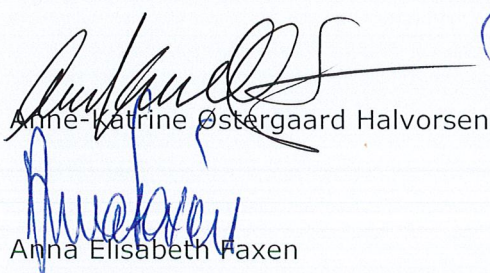 Anne-Katrine Østergaard Halvorsen
Anna Faxén
Anna Elisabeth Faxen